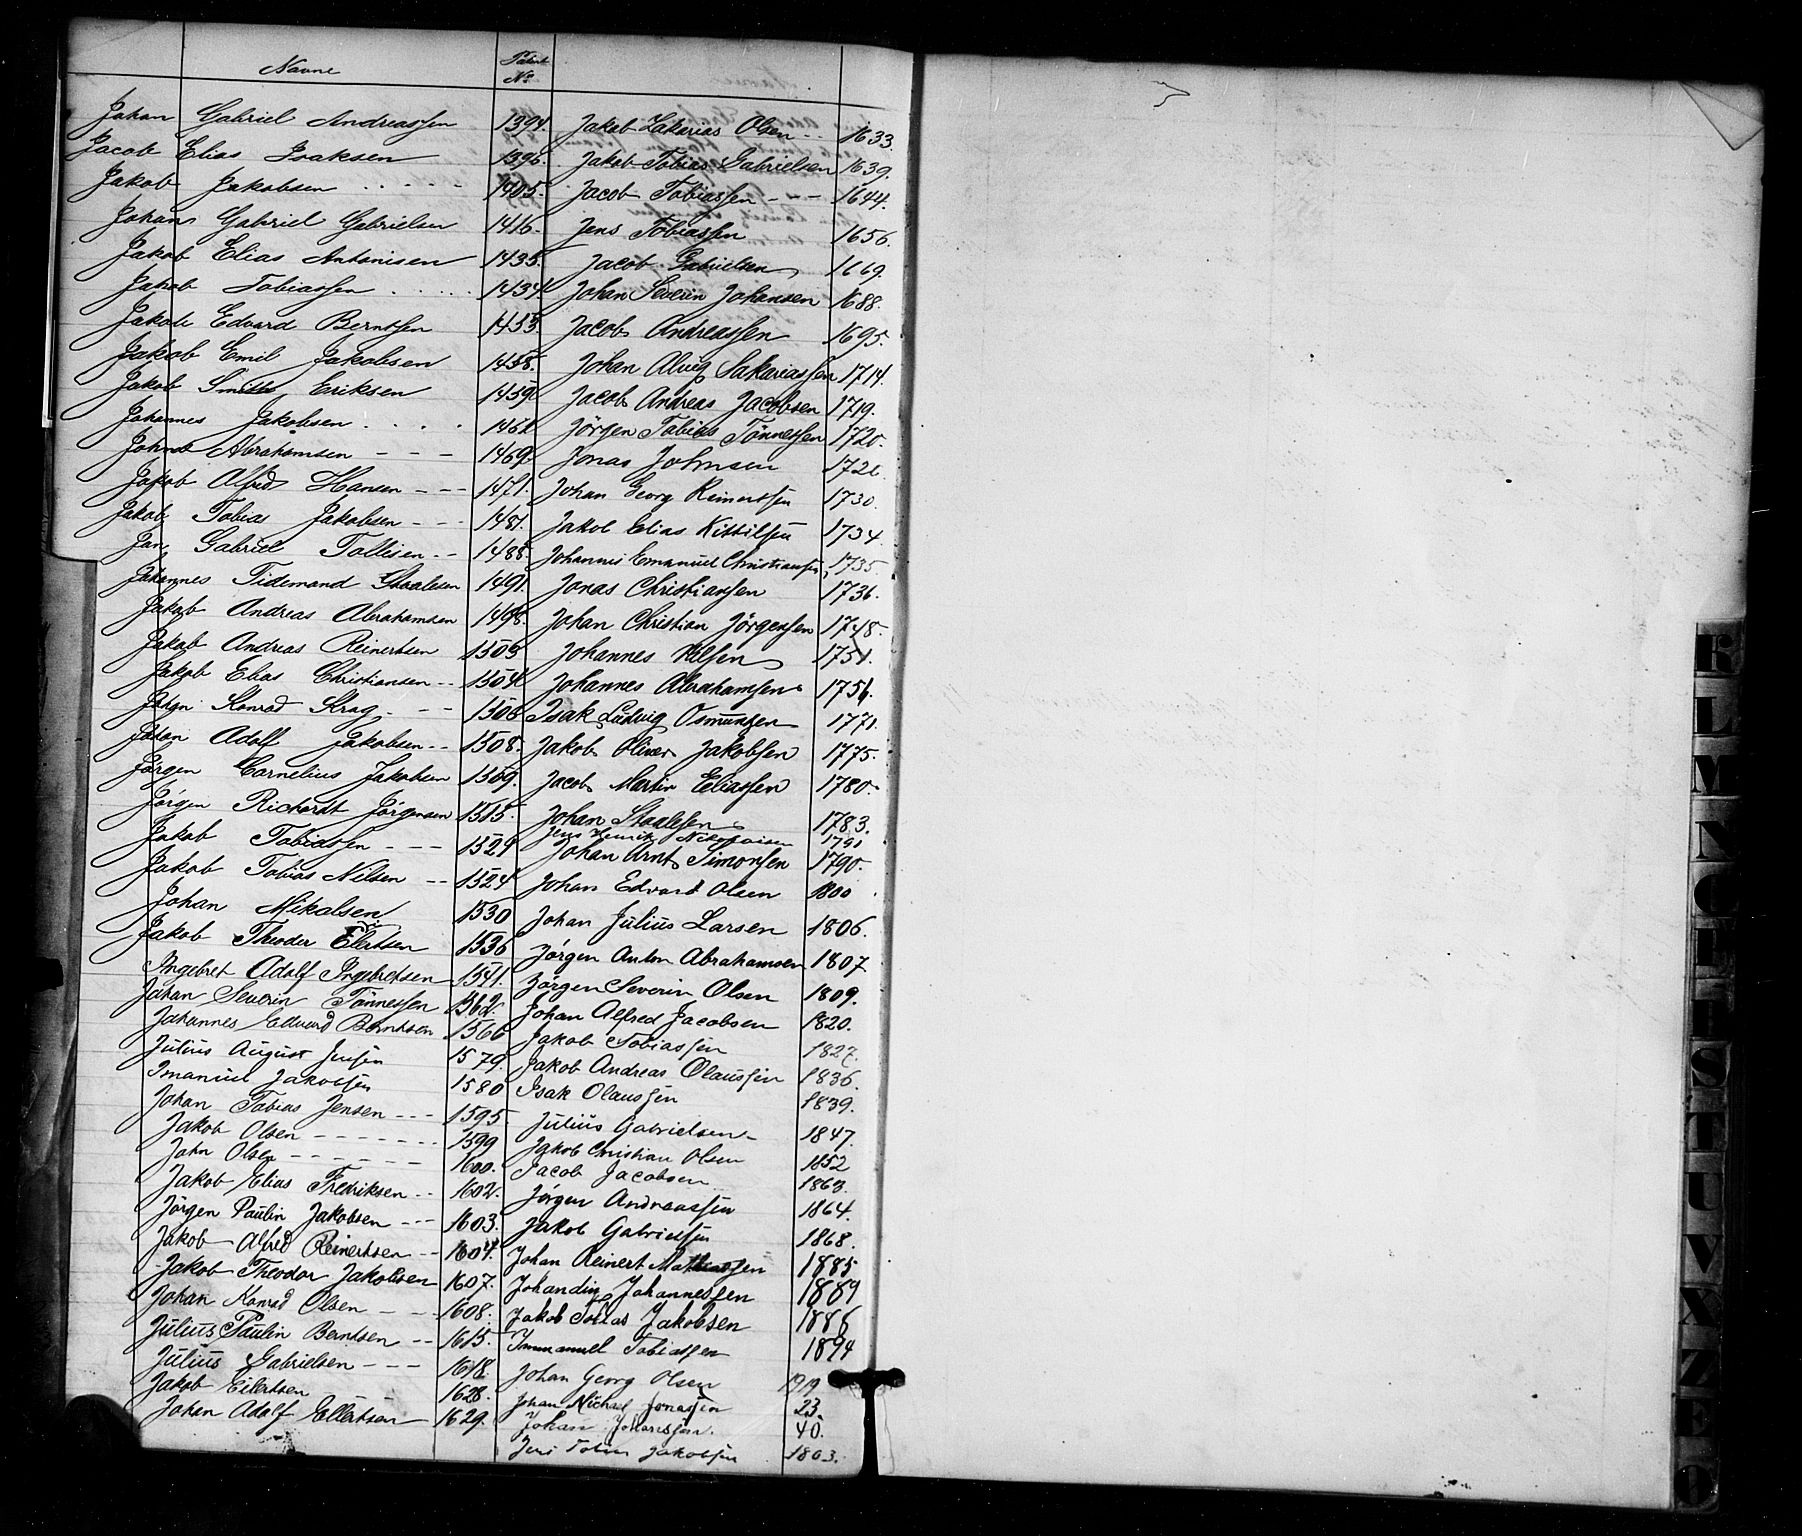 Navne
Patent No
Johan Gabriel Andreassen 1394.
Jacob Elias Isaksen 1396.
Jakob Jakobsen . . . . . 1405.
Johan Gabriel Gabrielsen 1416.
Jakob Elias Antonisen 1435.
Jakob Tobiassen . . . . . 1434
Jakob Edvard Berntsen 1453.
Jakob Emil Jakobsen 1458.
Jakob Smith Eriksen 1459
Johannes Jakobsen . . . . 1461
Abrahamsen - - - 1469.
Jakob Alfred Hansen - - - 1471.
Jakob Tobias Jakobsen - - - 1481.
Jan Gabriel Tollisen - - 1488.
Johannes Tidemand Staalesen 1491.
Jakob Andreas Abrahamsen 1498.
Jakob Andreas Reinertsen 1503
Jakob Elias Christiansen - - 1504
Johan Konrad Krag - - - 1506
Johan Adolf Jakobsen - - 1508.
Jørgen Cornelius Jakobsen 1509.
Jørgen Richardt Jørgensen 1515.
Jakob Tobiassen - - - 1521
Jakob Tobias Nilsen - - 1524
Johan Mikalsen 1530
Jakob Theodor Eilertsen 1536
Ingebret Adolf Ingebretsen 1541.
Johan Severin Tønnessen 1562.
Johannes Edvard Berntsen 1566
Julius August Jensen 1579.
Imanuel Jakobsen 1580
Johan Tobias Jensen - - - 1595
Jakob Olsen - - - - - - - 1599
John Olsen - - - - - - 1600.
Jakob Elias Fredriksen - - 1602.
Jørgen Paulin Jakobsen - - - 1603.
Jakob Alfred Reinertsen - - 1604.
Jakob Theodor Jakobsen 1607.
Johan Konrad Olsen - - - 1608.
Julius Paulin Berntsen - - 1615.
Julius Gabrielsen - - - 1618.
Jakob Eilertsen 1628.
Johan Adolf Ellertsen 1629.
Jakob Zakarias Olsen - - 1633.
Jakob Tobias Gabrielsen 1639.
Jacob Tobiassen - - - 1644.
Jens Tobiassen 1656.
Jacob Gabrielsen 1669.
Johan Severin Johansen 1688.
Jacob Andreassen 1695.
Johan Alvig Sakariassen 1714.
Jacob Andreas Jacobsen 1719.
Jørgen Tobias Tønnessen 1720.
Jonas Johnsen 172
Johan Georg Reinertsen 1730.
Jakob Elias Kittilsen 1734
Johannes Emanuel Christiansen 1735.
Jonas Christiansen 1736.
Johan Christian Jørgensen 1748.
Johannes Nilsen 1751.
Johannes Abrahamsen 1756.
Isak Ludvig Osmunsen 1771.
Jakob Oliver Jakobsen 1775.
Jacob Martin Eeliassen 1780.
Johan Staalesen 1783.
Jens Henrik 1791
Johan Arnt Simonsen 1790.
Johan Edvard Olsen 1800
Johan Julius Larsen 1806.
Jørgen Anton Abrahamsen 1807
Jørgen Severin Olsen 1809.
Johan Alfred Jacobsen 1820.
Jakob Tobiassen 1827.
Jakob Andreas Olaussen 1836.
Isak Olaussen 1839.
Julius Gabrielsen - 1847.
Jakob Christian Olsen 1852
Jacob Jacobsen 1863.
Jørgen Andreassen 1864.
Jakob Gabrielsen 1868.
Johan Reinert Mathiassen 1885
Johandin Johannessen 1889
Jakob Tobias Jakobsen 1886
Immanuel Tobiassen 1894
Johan Georg Olsen 1919
Johan Michael Jonassen 23.
Johan Johansen. 40.
Jens Tobias Jakobsen 1803.
K
L
M
N
S
T
U
V
X
Z
Æ
Ø